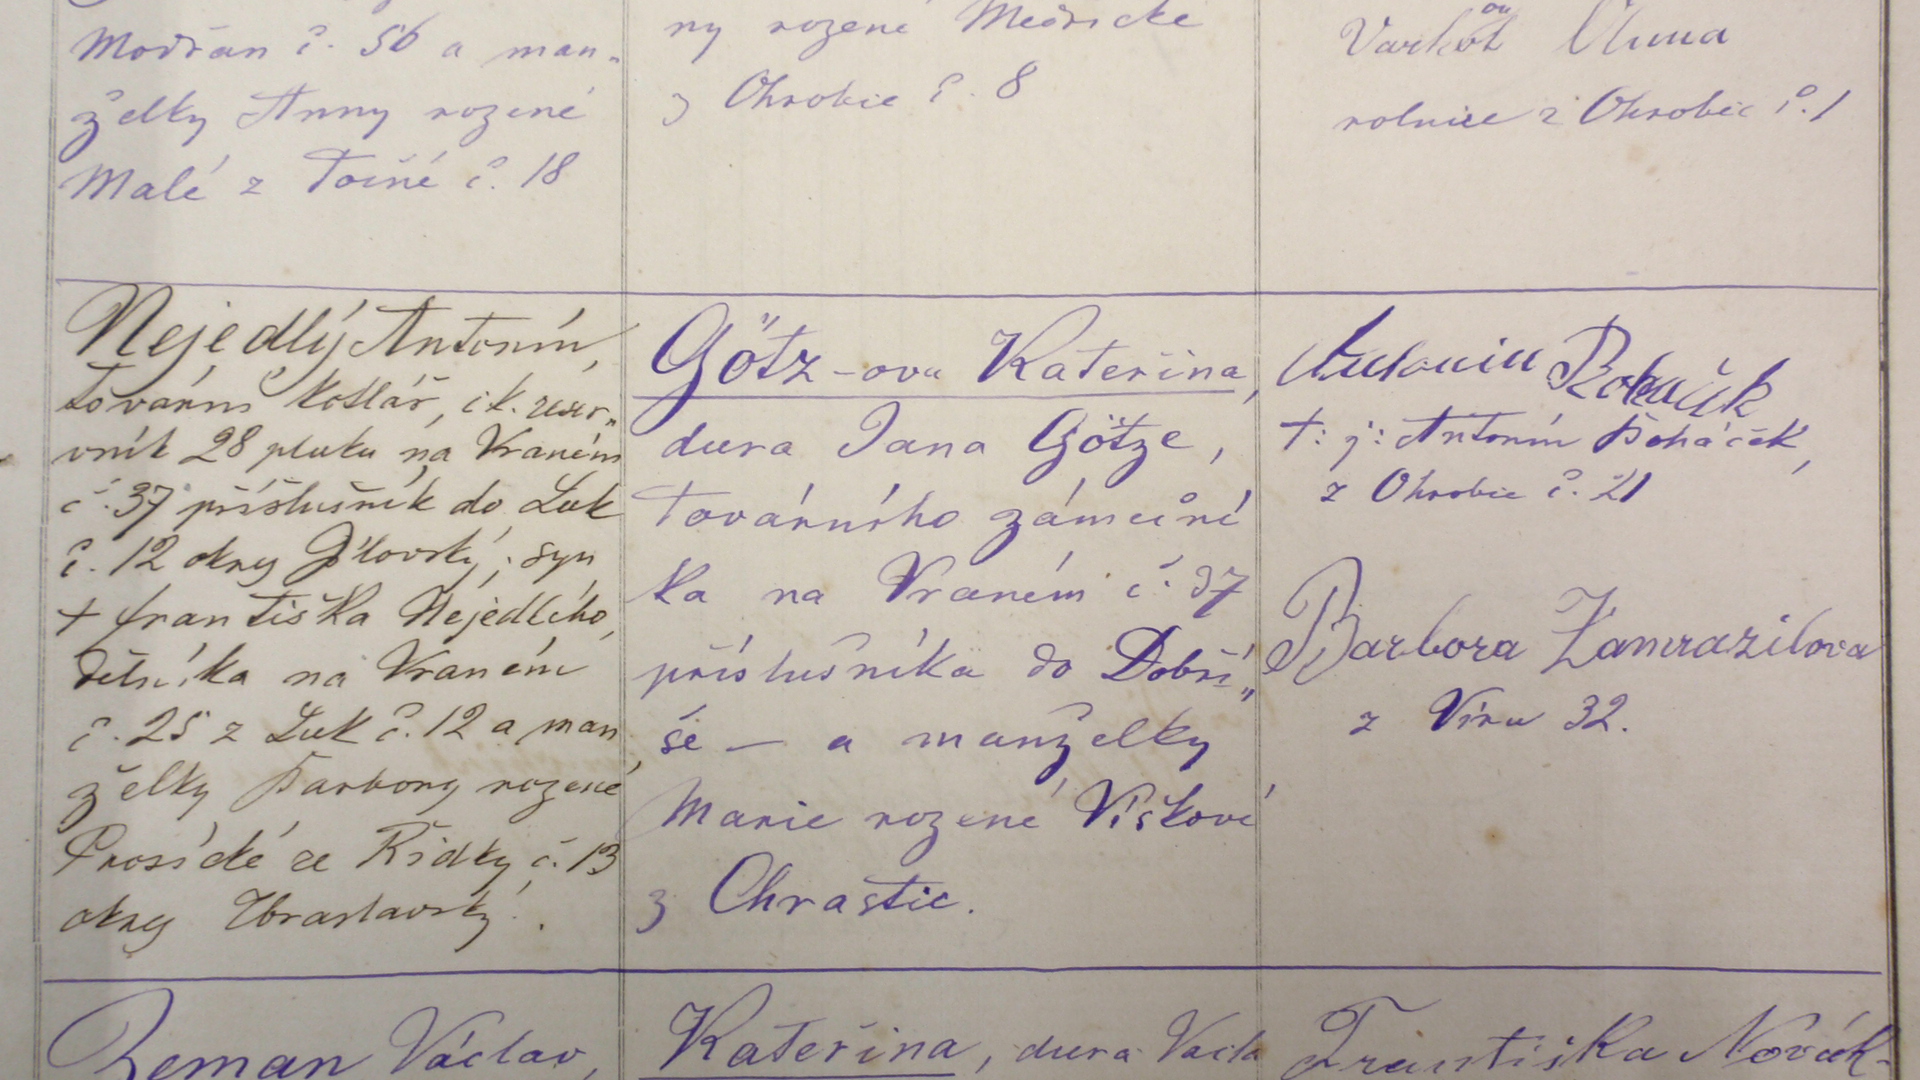 Modřan č. 56 a man-
želky Anny rozené
Malé z Točné č. 18
ny rozené Medřické
z Ohrobec č. 8
Anna
rolnice z Ohrobec č. 1
Nejedlý Antonín,
tovární kotlář, c. k. reser-
vník 28 pluku na Vraném
č. 37 příslušník do Luk
č. 12 okres Jílovský, syn
† Františka Nejedlého,
dělníka na Vraném
č. 25 z Luk č. 12 a man
želky Barbory rozené
Prosické ze Řidky č. 13
okres Zbraslavský.
Götz-ova Kateřina,
dcera Jana Götze,
továrního zámeční
ka na Vraném č. 37
příslušníka do Dobří-
še — a manželky
Marie rozené Víškové
z Chrastic.
Antonin Boháček
†: j: Antonín Boháček,
z Ohrobec č. 21
Barbora Zamrazilova
z Víru 32.
Zeman Václav,
Kateřina, dcera Václa
Frantiska Novák-